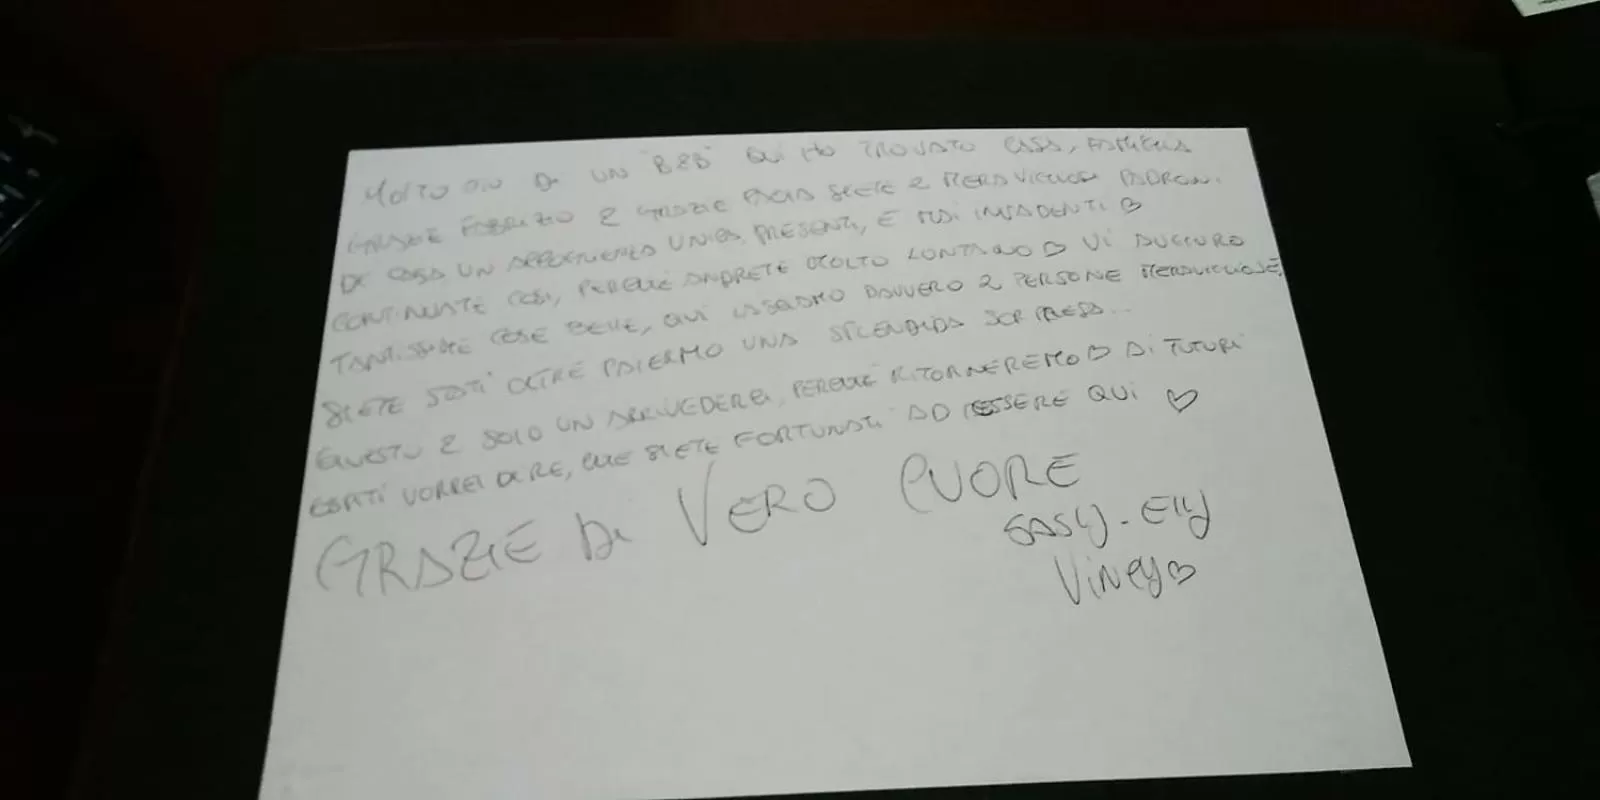 MOLTO PIÙ DI UN "B&B" QUI HO TROVATO CASA, FAMIGLIA
GRAZIE FABRIZIO E GRAZIE SIETE 2 MERAVIGLIOSI PADRONI
DI CASA UN UNICA, PRESENTI, E MAI INVADENTI ♡
CONTINUATE COSÌ, PERCHÉ ANDRETE MOLTO LONTANO ♡ VI AUGURO
TANTISSIME COSE BELLE, QUI LASCIAMO DAVVERO 2 PERSONE MERAVIGLIOSE,
SIETE STATI OLTRE PALERMO UNA SPLENDIDA SORPRESA...
QUESTO È SOLO UN ARRIVEDERCI, PERCHÉ RITORNEREMO ♡ AI FUTURI
VORREI DIRE, CHE SIETE FORTUNATI AD ESSERE QUI ♡
GRAZIE DI VERO CUORE
SASY - ELLY
VINCY ♡